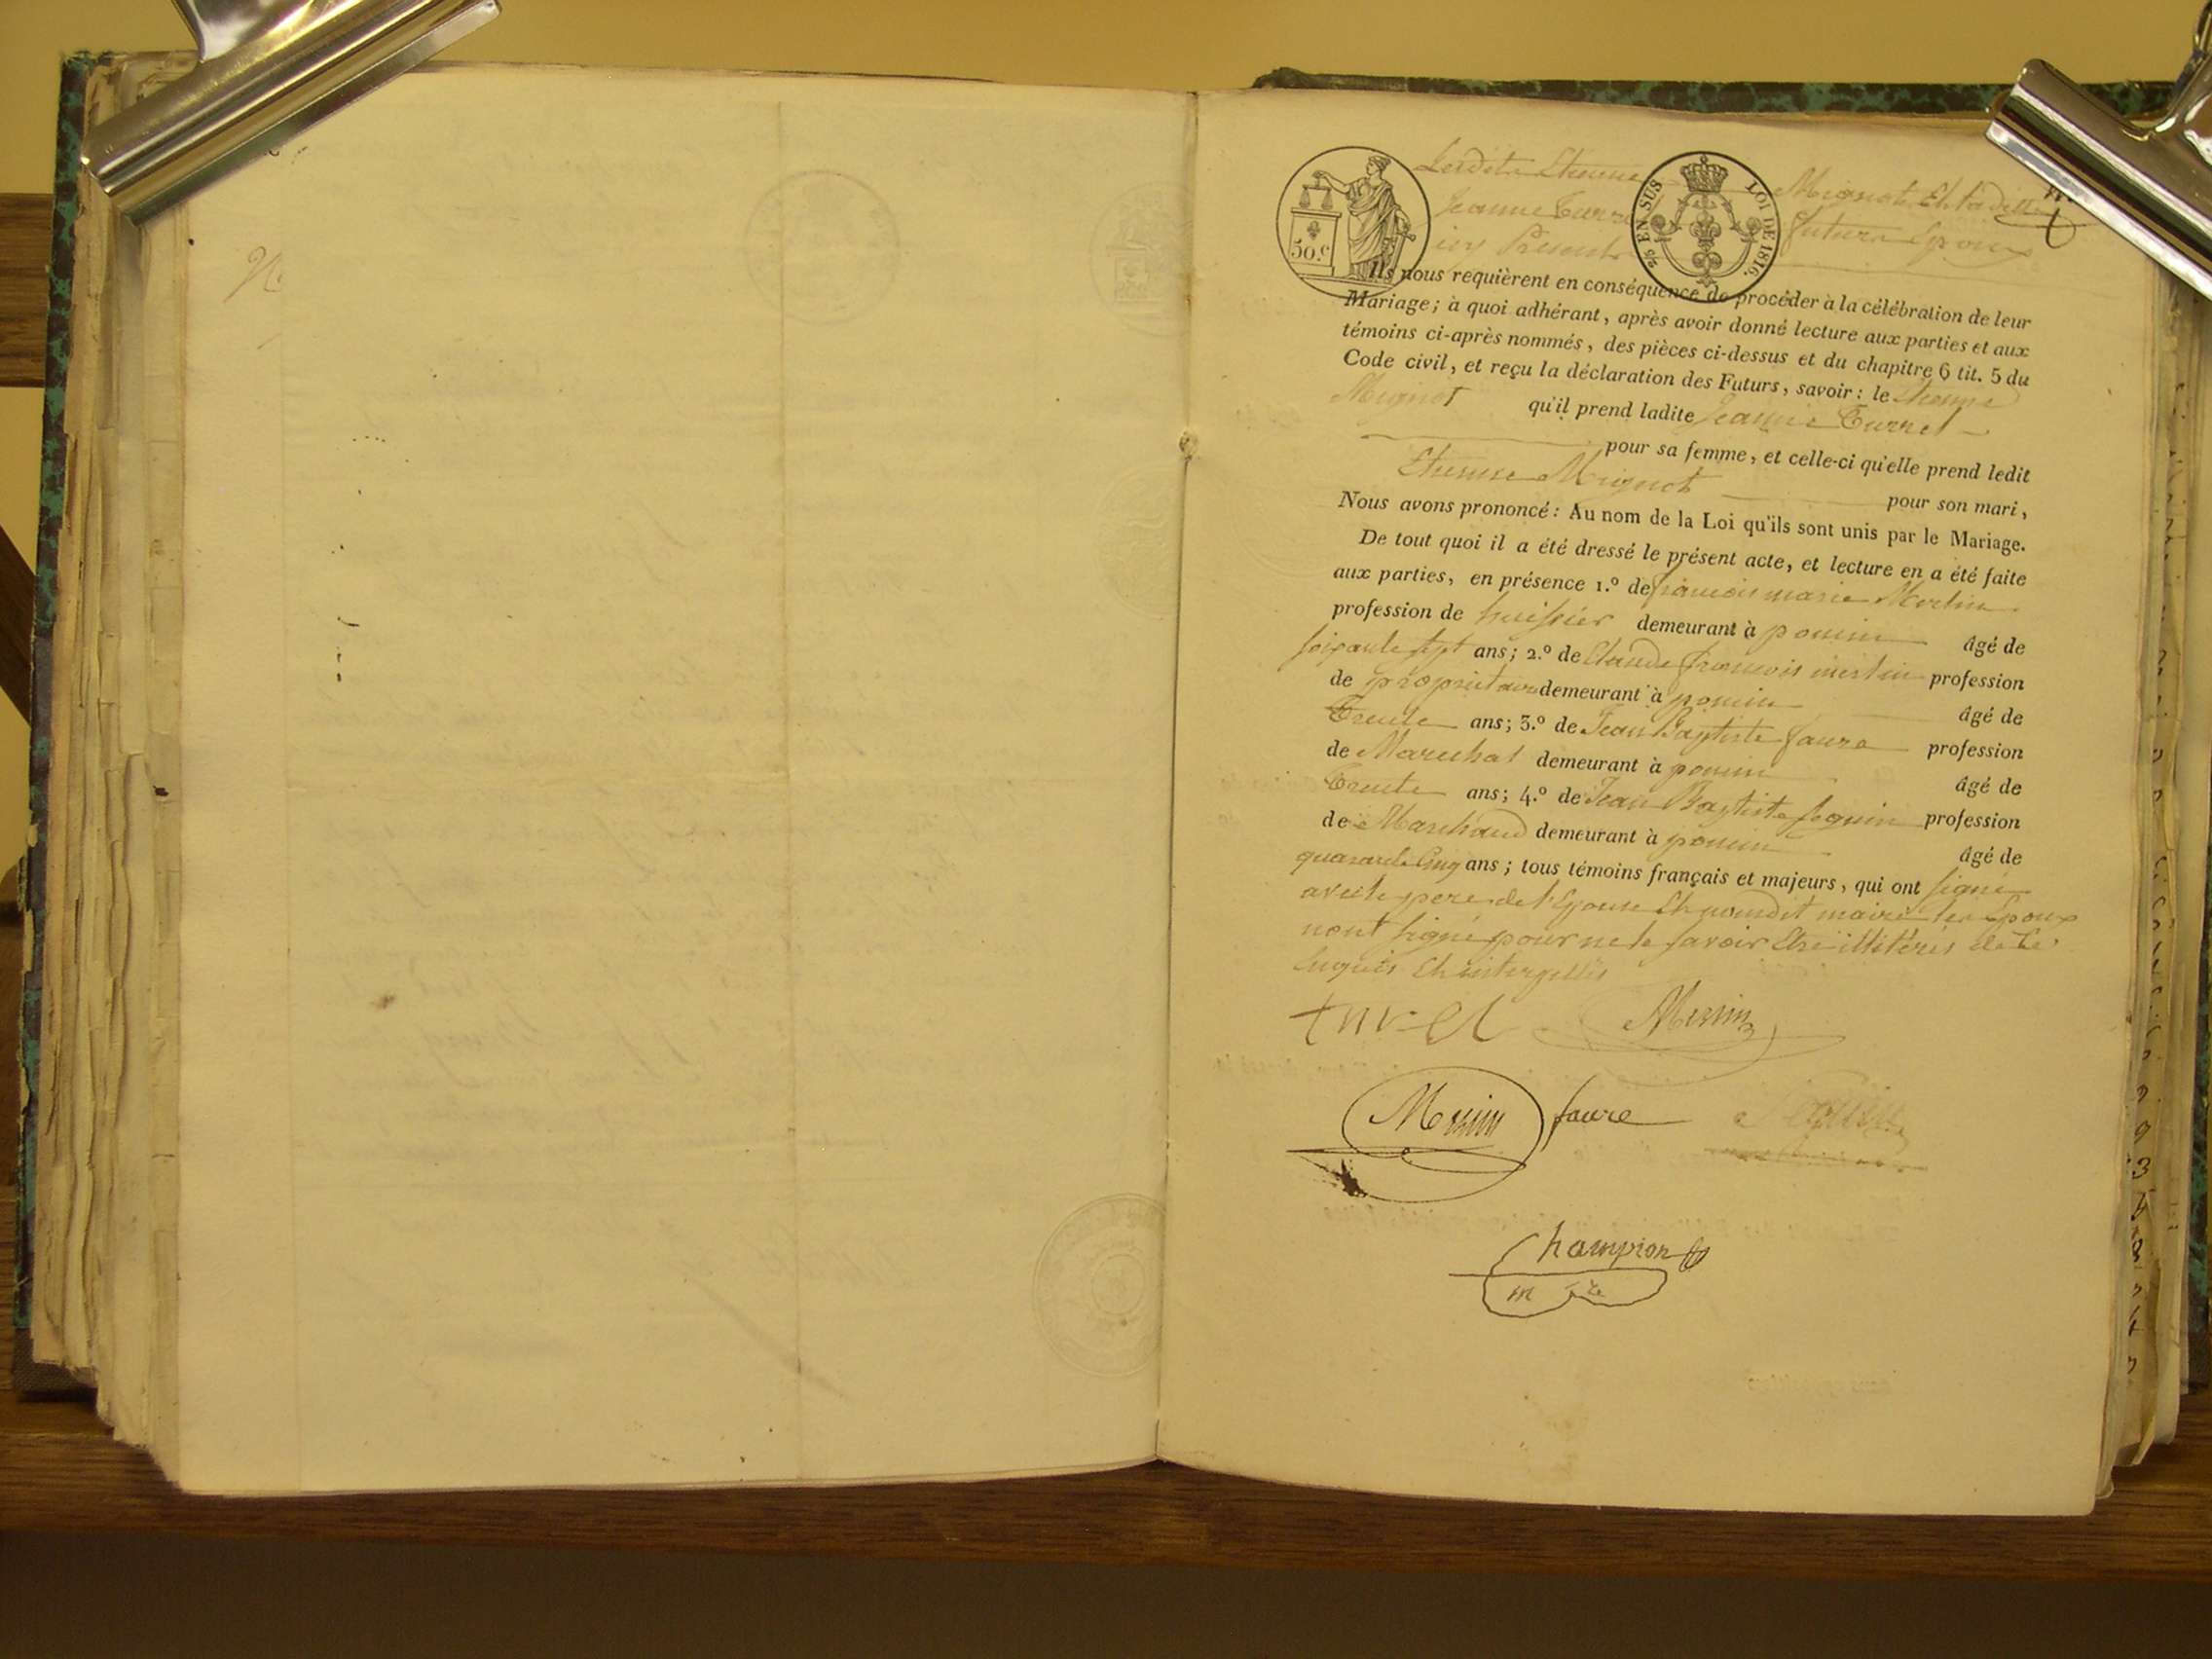 Lesdits Etienne Mignot Et ladelle
Jeanne Turrel futurs Epoux
icy Présents
50.c
25 EN SUS
LOI DE 1816.
Ils nous requièrent en conséquence de procéder à la célébration de leur
Mariage; à quoi adhérant, après avoir donné lecture aux parties et aux
témoins ci-après nommés, des pièces ci-dessus et du chapitre 6 tit. 5 du
Code civil, et reçu la déclaration des Futurs, savoir: le Etienne
Mignot qu'il prend ladite Jeanne Turrel
pour sa femme, et celle-ci qu'elle prend ledit
Etienne Mignot pour son mari,
Nous avons prononcé: Au nom de la Loi qu'ils sont unis par le Mariage.
De tout quoi il a été dressé le présent acte, et lecture en a été faite
aux parties, en présence 1.º de françois marie Merlin
profession de huissier demeurant à poncin âgé de
soixante sept ans; 2.º de Claude françois merlin profession
de propriétaire demeurant à poncin âgé de
Trente ans; 3.º de Jean Baptiste faure profession
de Marechal demeurant à poncin âgé de
Trente ans; 4.º de Jean Baptiste Seguin profession
de Marchand demeurant à poncin âgé de
quarante Cinq ans; tous témoins français et majeurs, qui ont signé
avec le pere de l'Epouse Et nousdit maire les Epoux
nont signé pour ne le savoir Etre illitérés de Ce
Enquis Et interpellés
turel Merlin
Merlin faure Seguin
Champion